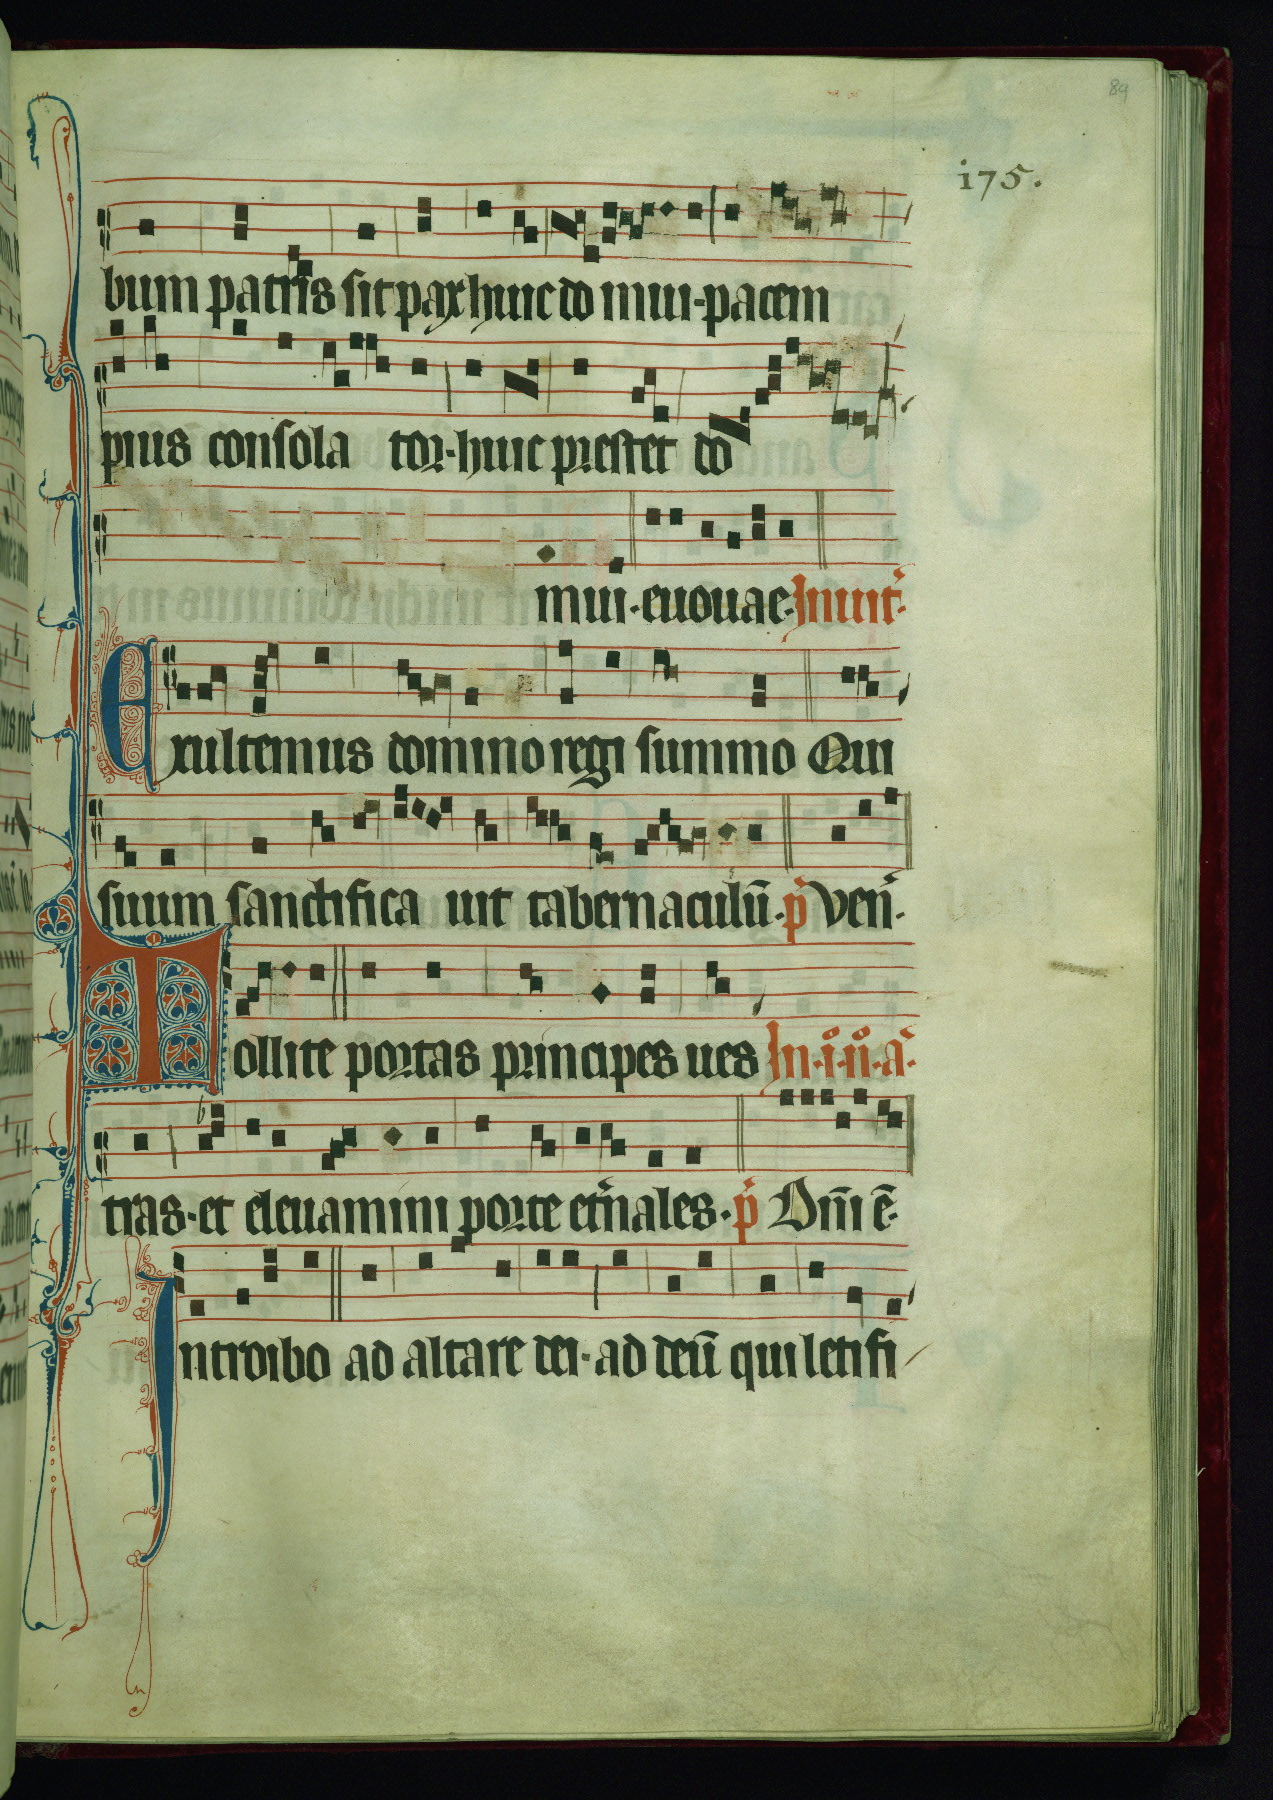 89
175.
bum patris sit pax huic do mui·pacem
pius consola tor·huic prestet do
mui·euouae·Inuit᷎·
Exultemus domino regi summo Qui
suum sanctifica uit tabernaculū·p̄ Ven̄·
Tollite portas principes ues In·i̊·n̊·a᷎·
tras·et eleuamini porte et᷎nales·p̄ Dn̄i ē·
Introibo ad altare dei·ad deū qui letifi